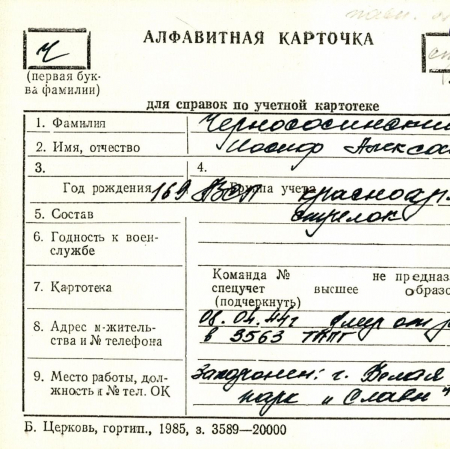 Ч
АЛФАВИТНАЯ КАРТОЧКА
(первая бук-
ва фамилии)
для справок по учетной картотеке
1. Фамилия Черносвинский
2. Имя, отчество Иосиф Алекса
3.
4.
Год рождения 169 ВСП Группа учета красноар
5. Состав стрелок
6. Годность к воен-
службе
7. Картотека
Команда № не предназ
спецучет высшее образо
(подчеркнуть)
8. Адрес м-житель-
ства и № телефона
08.04.44г умер от р
в 3563 ТППГ
9. Место работы, дол-
жность и № тел. ОК
Захоронен: г. Белая
парк "Славы"
Б. Церковь, гортип., 1985, з. 3589—20000